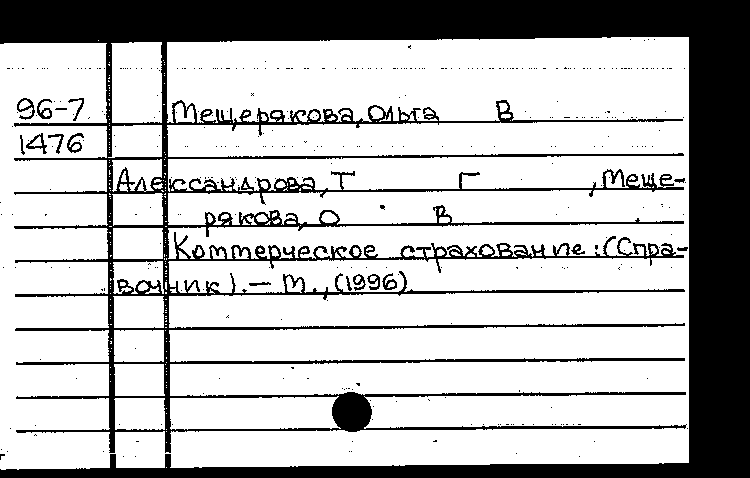 96-7 Мещерякова, Ольга В
1476
Александрова, Т Г , Меще-
рякова, О В
Коммерческое страхование: (Спра-
вочник).— М., (1996).